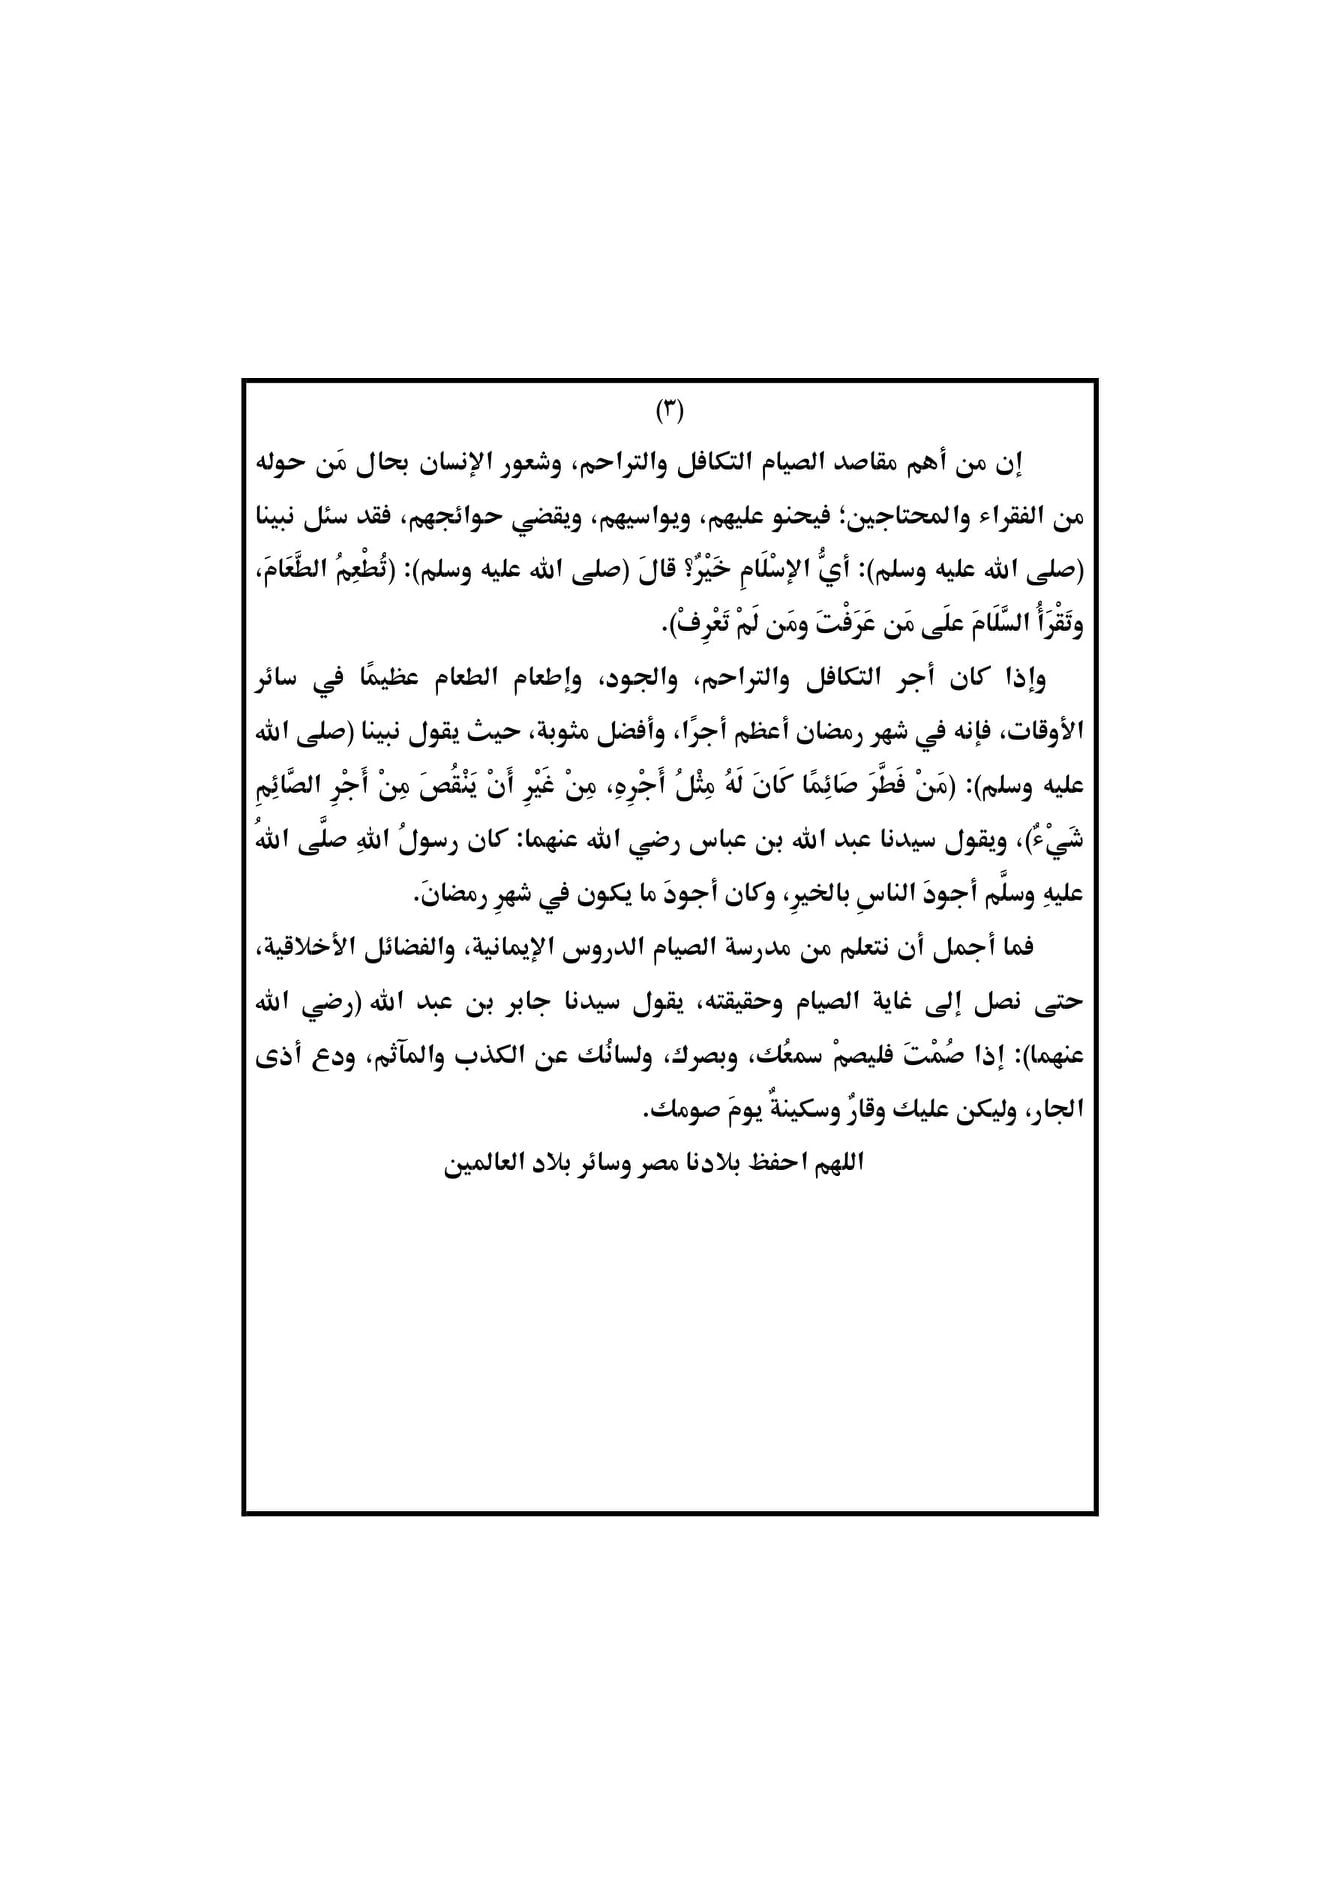 (٣)
إن من أهم مقاصد الصيام التكافل والتراحم، وشعور الإنسان بحال مَن حوله
من الفقراء والمحتاجين؛ فيحنو عليهم، ويواسيهم، ويقضي حوائجهم، فقد سئل نبينا
(صلى الله عليه وسلم): أيُّ الإسْلَامِ خَيْرٌ؟ قالَ (صلى الله عليه وسلم): (تُطْعِمُ الطَّعَامَ،
وتَقْرَأُ السَّلَامَ علَى مَن عَرَفْتَ ومَن لَمْ تَعْرِفْ).
وإذا كان أجر التكافل والتراحم، والجود، وإطعام الطعام عظيمًا في سائر
الأوقات، فإنه في شهر رمضان أعظم أجرًا، وأفضل مثوبة، حيث يقول نبينا (صلى الله
عليه وسلم): (مَنْ فَطَّرَ صَائِمًا كَانَ لَهُ مِثْلُ أَجْرِهِ، مِنْ غَيْرِ أَنْ يَنْقُصَ مِنْ أَجْرِ الصَّائِمِ
شَيْءٌ)، ويقول سيدنا عبد الله بن عباس رضي الله عنهما: كان رسولُ اللهِ صلَّى اللهُ
عليهِ وسلَّم أجودَ الناسِ بالخيرِ، وكان أجودَ ما يكون في شهرِ رمضانَ.
فما أجمل أن نتعلم من مدرسة الصيام الدروس الإيمانية، والفضائل الأخلاقية،
حتى نصل إلى غاية الصيام وحقيقته، يقول سيدنا جابر بن عبد الله (رضي الله
عنهما): إذا صُمْتَ فليصمْ سمعُك، وبصرك، ولسانُك عن الكذب والمآثم، ودع أذى
الجار، وليكن عليك وقارٌ وسكينةٌ يومَ صومك.
اللهم احفظ بلادنا مصر وسائر بلاد العالمين